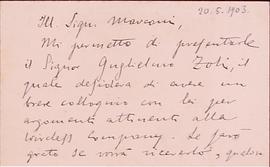 20.5.1903.
Ill. Sign. Marconi,
Mi permetto di presentarle
il Signor Guglielmo Zoli, il
quale desidera di avere un
breve colloquio con lei per
argomenti attinenti alla
Wireless Company. Le sarò
grato se vorrà riceverlo,